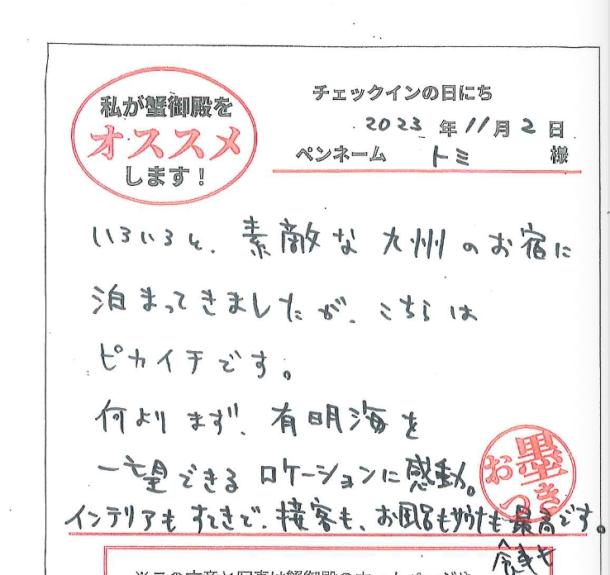 私が蟹御殿を
オススメ
します！
チェックインの日にち
2023年11月2日
ペンネーム トミ 様
いろいろと、素敵な九州のお宿に
泊まってきましたが、こちらは
ピカイチです。
何よりまず、有明海を
一望できるロケーションに感動。
インテリアもすてきで、接客も、お風呂もサウナも最高です。
食事も
お墨
つき